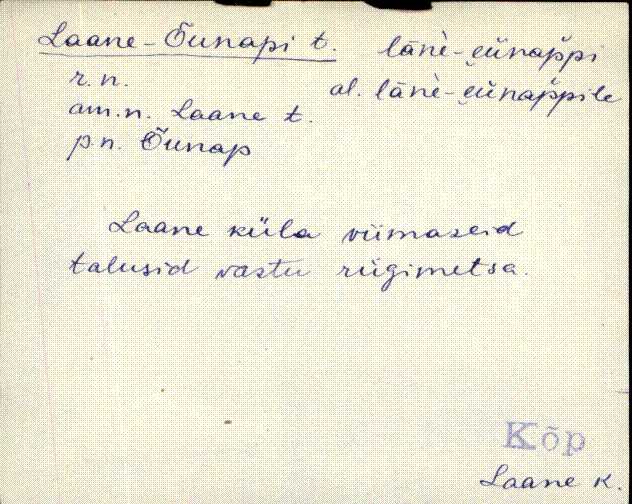 Laane-Õunapi t. lāǹe-e̮ùnappi
r.n. al. lāǹe-e̮ùnappile
am.n. Laane t.
p.n. Õunap
Laane küla viimaseid
talusid vastu riigimetsa.
Kõp
Laane k.